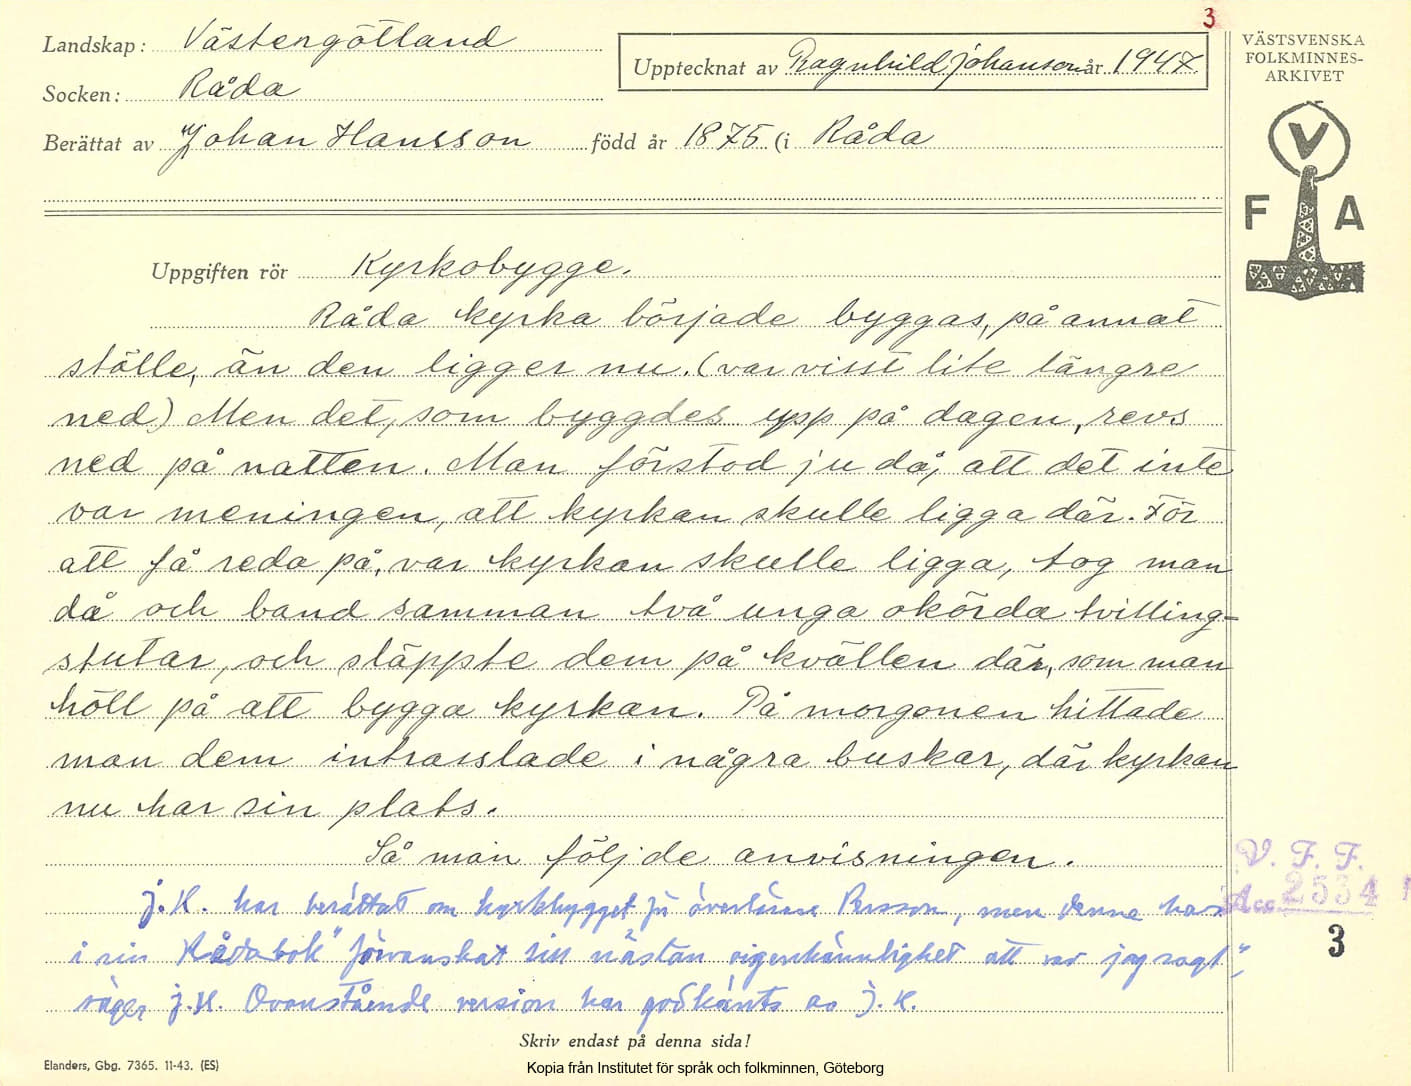 3
Landskap: Västergötland
Upptecknat av Ragnhild Johansson år 1947.
VÄSTSVENSKA
FOLKMINNES-
ARKIVET
Socken: Råda
Berättat av Johan Hansson född år 1875 (i Råda
V
F A
Uppgiften rör Kyrkobygge.
Råda kyrka började byggas, på annat
ställe, än den ligger nu. (var visst lite längre
ned) Men det, som byggdes upp på dagen, revs
ned på natten. Man förstod ju då, att det inte
var meningen, att kyrkan skulle ligga där. För
att få reda på, var kyrkan skulle ligga, tog man
då och band samman två unga okörda tvilling-
stutar, och släppte dem på kvällen där, som man
höll på att bygga kyrkan. På morgonen hittade
man dem intrasslade i några buskar, där kyrkan
nu har sin plats.
Så man följde anvisningen.
J.H. har berättat om kyrkbygget för överlärare Persson, men denne har
i sin Rådabok "förvanskat till nästan oigenkännlighet att var jag sagt",
säger J.H. Ovanstående version har godkänts av J.H.
V. F. F.
Acc 2534
3
Skriv endast på denna sida!
Elanders, Gbg. 7365. 11-43. (ES)
Kopia från Institutet för språk och folkminnen, Göteborg